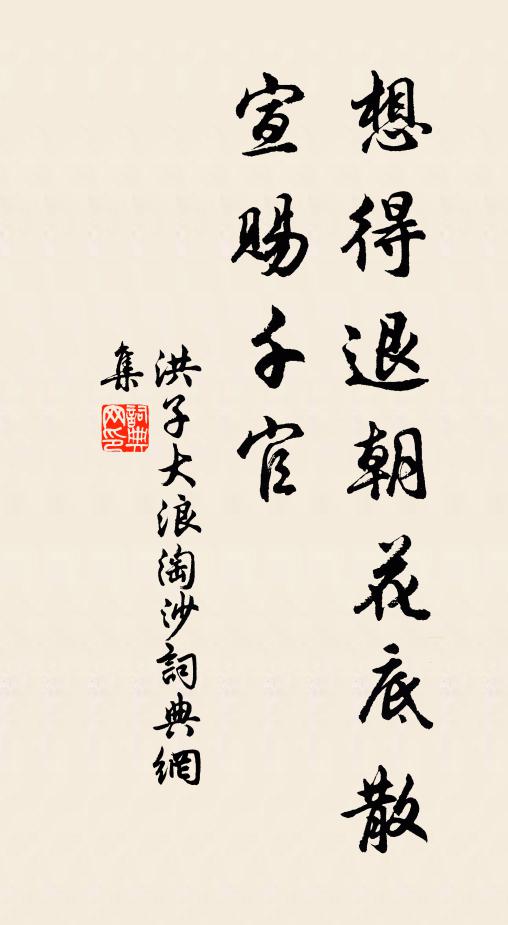 想得退朝花底散
宣賜千官
洪子大浪淘沙詞典網
集
詞典
网印